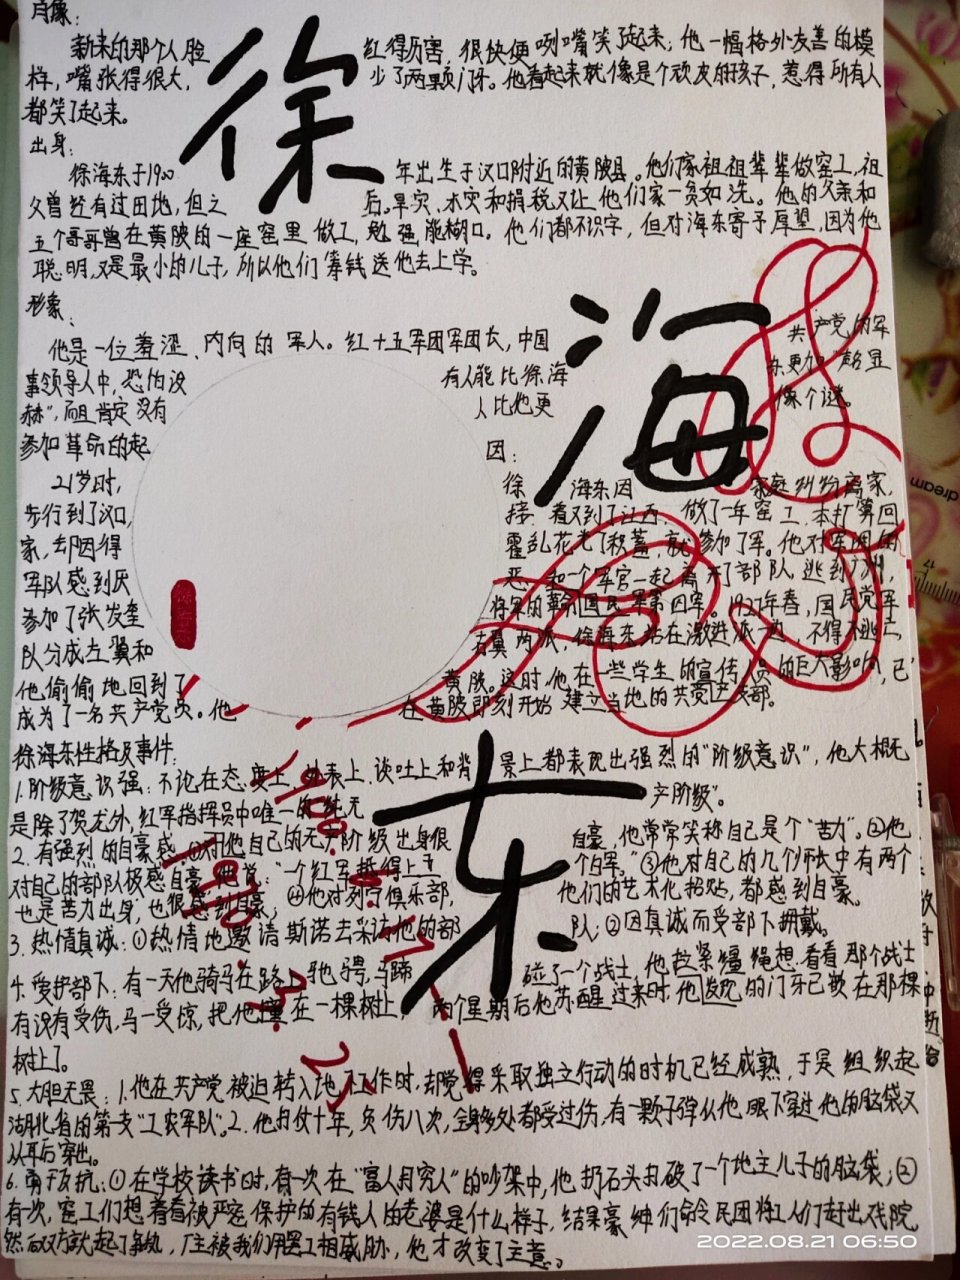 肖像：
新来的那个人脸 红得厉害，很快便咧嘴笑起来；他一幅格外友善的模
样，嘴张得很大， 少了两颗门牙。他看起来就像是个顽皮的孩子，惹得所有人
都笑了起来。
出身：
徐海东于1900 年出生于汉口附近的黄陂县。他们家祖祖辈辈做窑工，祖
父曾经有过田地，但之 后。旱灾、水灾和捐税又让他们家一贫如洗。他的父亲和
五个哥哥曾在黄陂的一座窑里做工，勉强能糊口。他们都不识字，但对海东寄予厚望，因为他
聪明，又是最小的儿子，所以他们筹钱送他去上学。
徐
海
东
形象：
他是一位羞涩、内向的军人。红十五军团军团长，中国 共产党的军
事领导人中，恐怕没 有人能比徐海 东更加“声名显
赫”，而且肯定没有 人比他更 像个谜。
参加革命的起 因：
21岁时， 徐 海东因 家庭纠纷离家，
步行到了汉口， 接 着又到了江西， 做了一年窑工，本打算回
家，却因得 霍乱花光了积蓄，就参加了军。他对军阀的
军队感到厌 恶，和一个军官一起离开了部队，逃到广州，
参加了张发奎 将军的革命国民军第四军。1927年春，国民党军
队分成左翼和 右翼两派，徐海东站在激进派一边，不得不逃亡，
他偷偷地回到了 黄陂。这时，他在一些学生的宣传人员的巨大影响，已
成为了一名共产党员。他 在黄陂即刻开始建立当地的共党区支部。
徐海东性格及事件：
1.阶级意识强：不论在态度上、外表上、谈吐上和背 景上都表现出强烈的“阶级意识”，他大概无
是除了贺龙外，红军指挥员中唯一的纯无 产阶级”。
2.有强烈的自豪感：①对他自己的无产阶级出身很 自豪，他常常笑称自己是个“苦力”。②他
对自己的部队极感自豪，他说：“一个红军抵得上五 个白军。”③他对自己的几个师长中有两个
也是苦力出身，也很感到自豪； ④他对列宁俱乐部， 他们的艺术化招贴，都感到自豪。
3.热情真诚：①热情地邀请斯诺去采访他的部 队；②因真诚而受部下拥戴。
4.爱护部下：有一天他骑马在路上驰骋，马蹄 碰了一个战士，他拉紧缰绳想看看那个战士
有没有受伤，马一受惊，把他撞在一棵树上， 两个星期后他苏醒过来时，他发现的门牙已嵌在那棵
树上了。
5.大胆无畏：1.他在共产党被迫转入地下工作时，却觉得采取独立行动的时机已经成熟，于是组织起
湖北省的第一支“工农军队”。2.他打仗十年，负伤八次，全身多处都受过伤，有一颗子弹从他眼下穿过他的脑袋又
从耳后穿出。
6.勇于反抗：①在学校读书时，有一次在“富人月穷人”的吵架中，他扔石头打破了一个地主儿子的脑袋；②
有一次，窑工们想看看被严密保护的有钱人的老婆是什么样子，结果豪绅们命令民团将工人们赶出戏院，
然而双方就起了争执，厂主被我们用罢工相威胁，他才改变了主意。
dream
2022.08.21 06:50